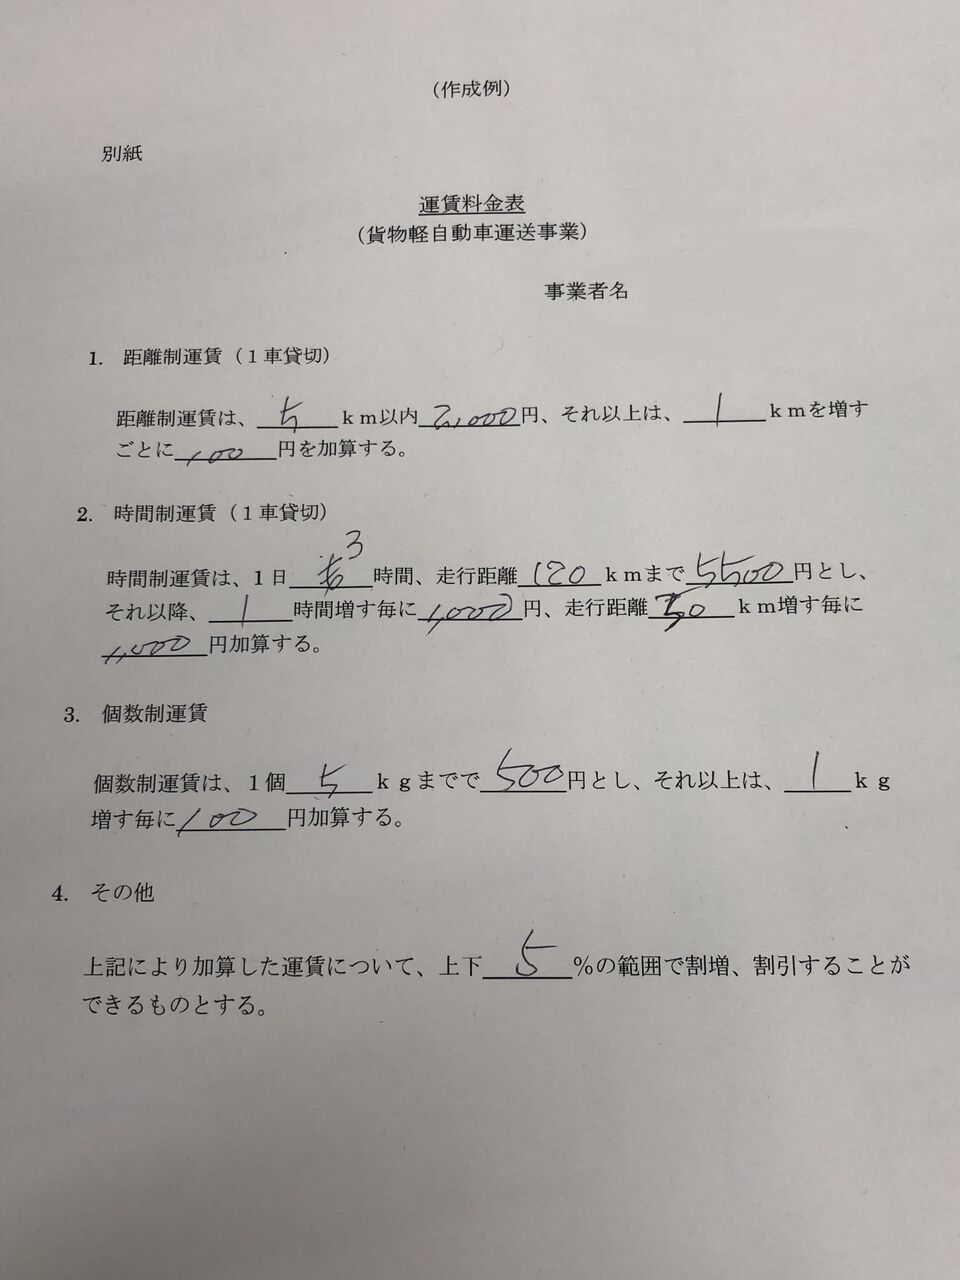 (作成例)
別紙
運賃料金表
(貨物軽自動車運送事業)
事業者名
1. 距離制運賃(1車貸切)
距離制運賃は、5km以内2,000円、それ以上は、1kmを増す
ごとに100円を加算する。
2. 時間制運賃(1車貸切)
時間制運賃は、1日3時間、走行距離120kmまで5500円とし、
それ以降、1時間増す毎に1,000円、走行距離km増す毎に
1,000円加算する。
3. 個数制運賃
個数制運賃は、1個5kgまでで500円とし、それ以上は、1kg
増す毎に100円加算する。
4. その他
上記により加算した運賃について、上下5%の範囲で割増、割引することが
できるものとする。